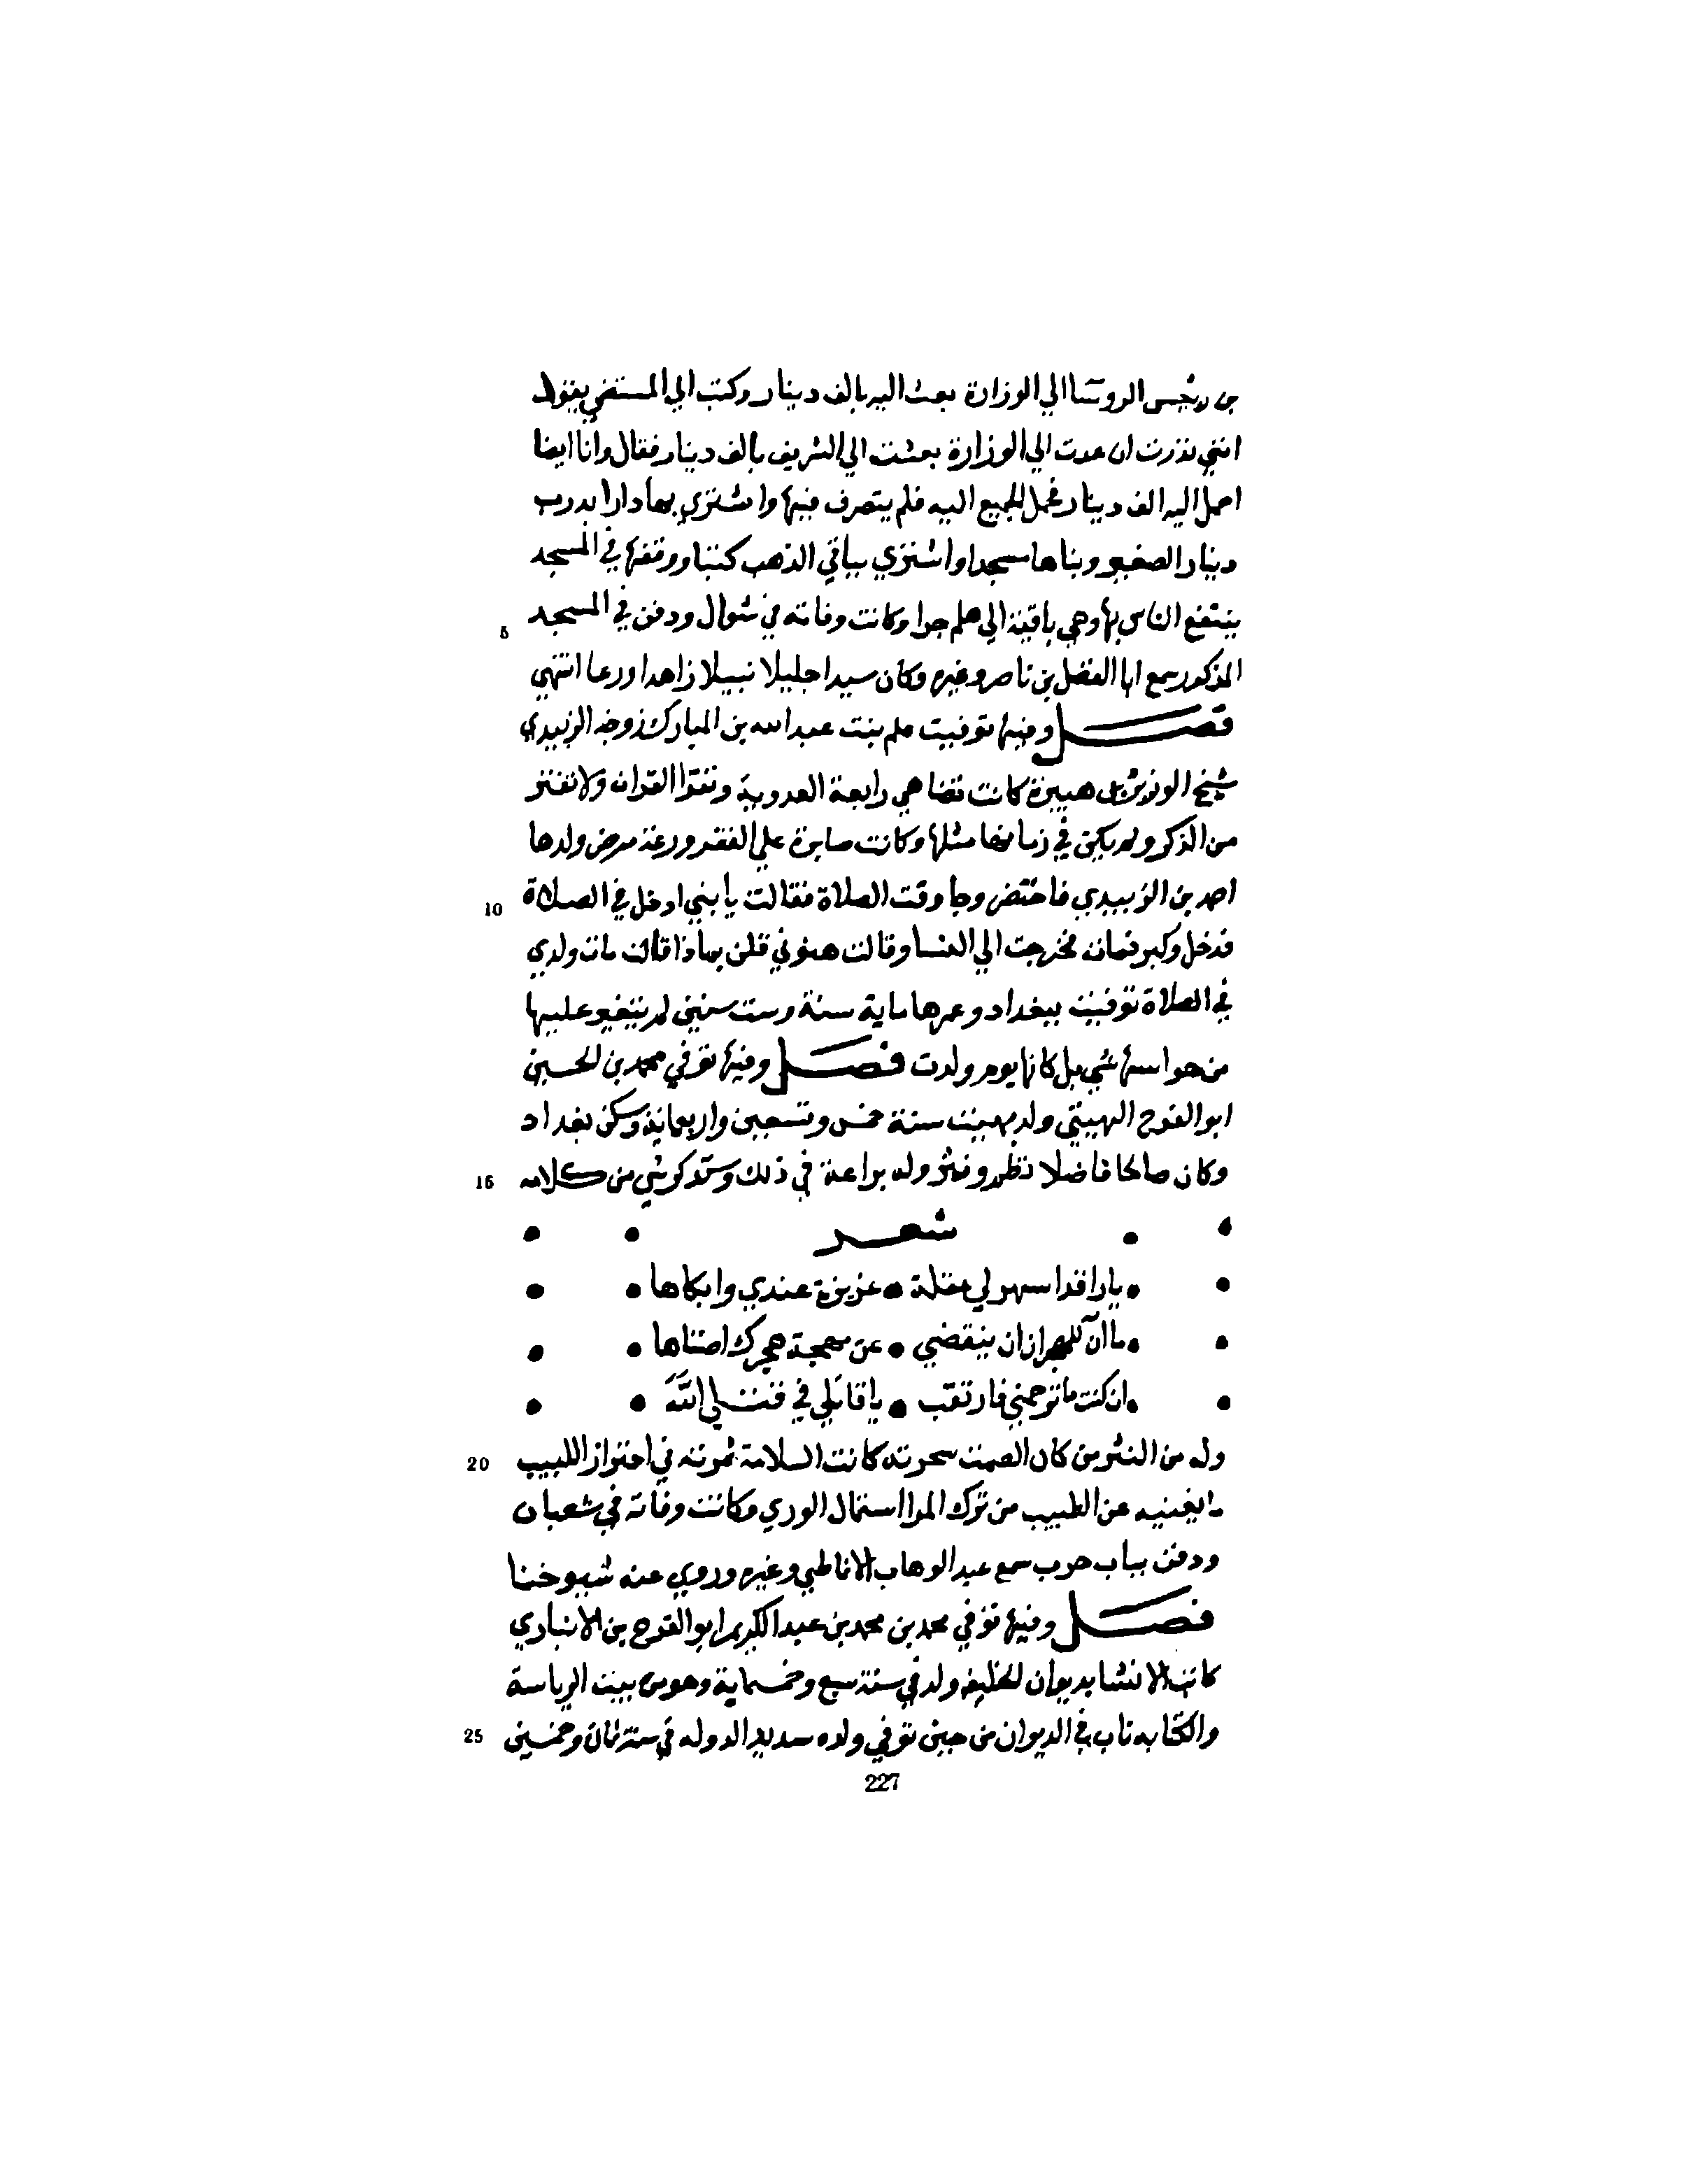 بن رئيس الروسا الي الوزارة بعث اليه بالف دينار وكتب الي المستضي يقول
انني نذرت ان عدت الي الوزارة بعثت الي الشريف بالف دينار فقال وانا ايضا
احمل اليه الف دينار فحمل الجميع اليه فلم يتصرف فيها واشتري بها دارا بدرب
دينار الصغير وبناها مسجدا واشتري بباقي الذهب كتبا ووقفها في المسجد
ينتفع الناس بها وهي باقية الي هلم جرا وكانت وفاته في شوال ودفن في المسجد
5
المذكور سمع ابا الفضل بن ناصر وغيره وكان سيدا جليلا نبيلا زاهدا ورعا انتهي
فصل وفيها توفيت علم بنت عبد الله بن المبارك زوجة الزبيدي
شيخ الوزير بن هبيرة كانت تضاهي رابعة العدوية وتقرا القران ولا تفتر
من الذكر ولم يكن في زمانها مثلها وكانت صابرة علي الفقر ورعة مرض ولدها
احمد بن الزبيدي فاحتضر وجا وقت الصلاة فقالت يا بني ادخل في الصلاة
10
فدخل وكبر فمات فخرجت الي النسا وقالت هنوني قلن بماذا قالت مات ولدي
في الصلاة توفيت ببغداد وعمرها ماية سنة وست سنين لم يتغير عليها
من حواسها شي بل كانها يوم ولدت فصل وفيها توفي محمد بن الحسين
ابو الفرج الهيتي ولد بهيت سنة خمس وتسعين واربعماية وسكن بغداد
وكان صالحا فاضلا نظم ونثر وله براعة في ذلك وسنذكر شي من كلامه
15
شعر
يا راقدا سهر لي مقلة • عزيزة عندي وابكاها
ما آن للهجران ان ينقضي • عن مهجة هجرك اضناها
ان كنت ما ترحمني فارتقب • يا قاتلي في قتلي اللّه
وله من النثر من كان الصمت سحرته كانت السلامة ثمرته في احتراز اللبيب
20
ما يغنيه عن الطبيب من ترك المرا استمال الوري وكانت وفاته في شعبان
ودفن بباب حرب سمع عبد الوهاب الانماطي وغيره وروي عنه شيوخنا
فصل وفيها توفي محمد بن محمد بن عبد الكريم ابو الفرج بن الانباري
كاتب الانشا بديوان الخليفه ولد في سنة سبع وخمسماية وهو من بيت الرياسة
والكتابه ناب في الديوان من حين توفي ولده سديد الدوله في سنة ثمان وخمسين
25
227